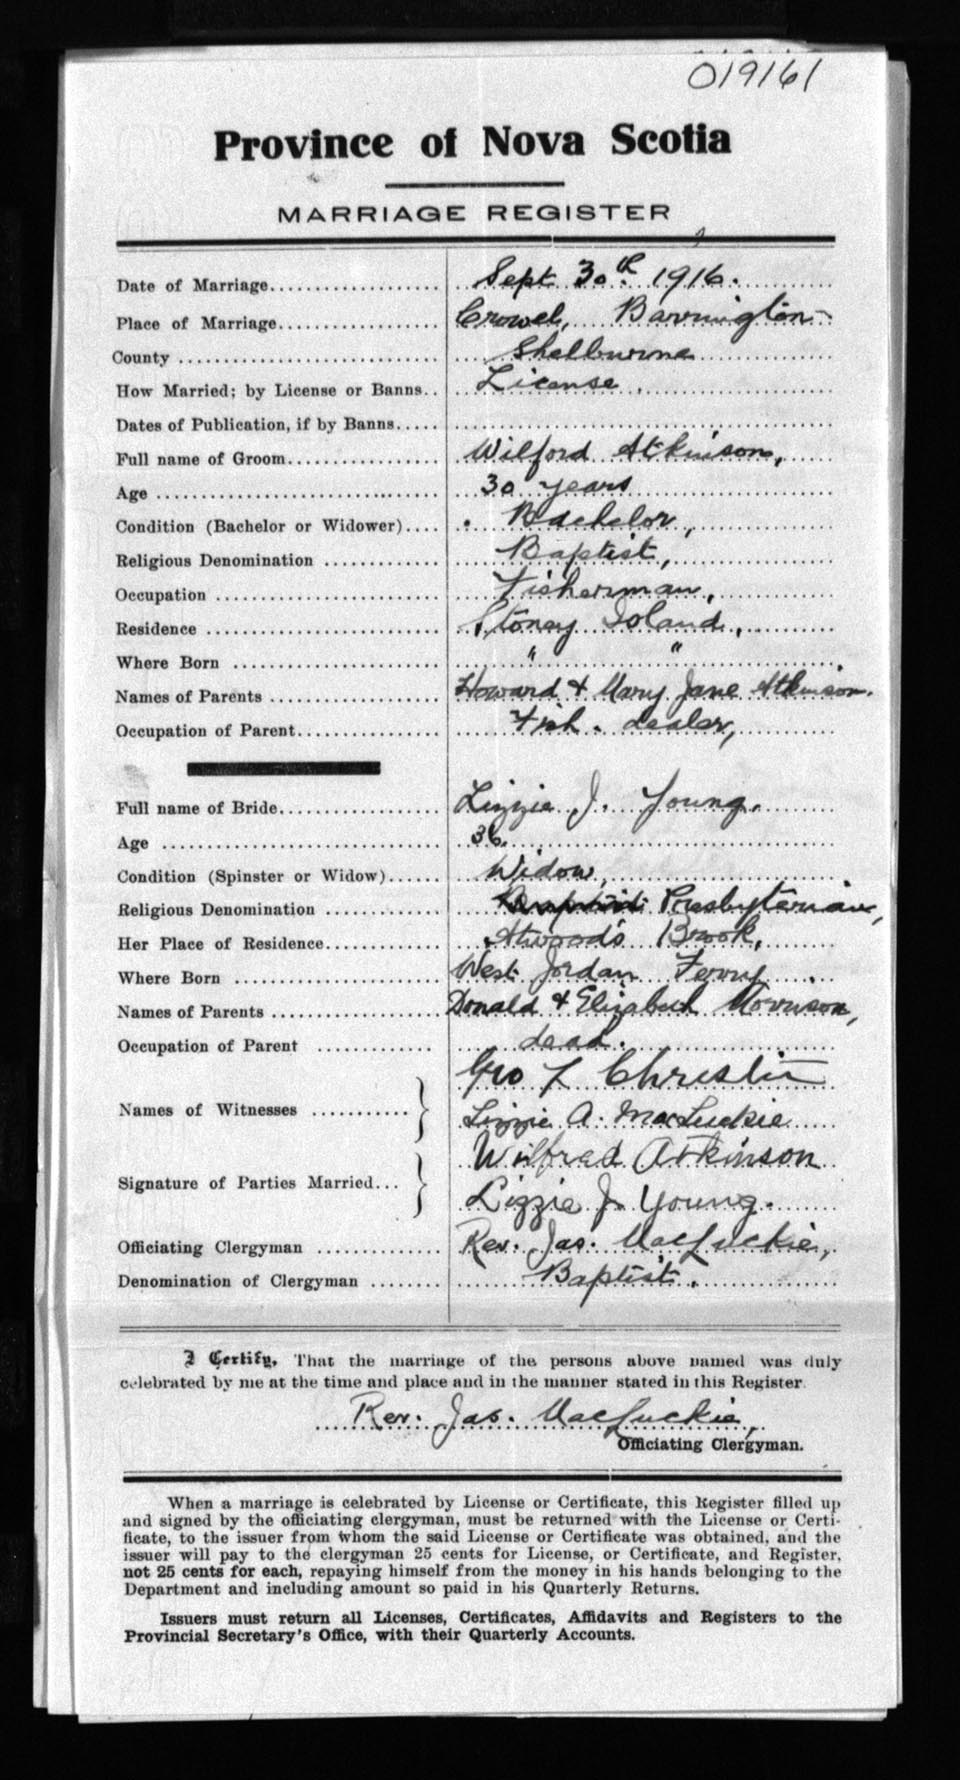 019161
Province of Nova Scotia
MARRIAGE REGISTER
Date of Marriage.................... Sept 30th 1916.
Place of Marriage................... Crowel, Barrington
County ........................... Shelburne
How Married; by License or Banns.. License
Dates of Publication, if by Banns.....
Full name of Groom.................. Wilford Atkinson,
Age ............................. 30 years
Condition (Bachelor or Widower).... Bachelor,
Religious Denomination ............. Baptist,
Occupation ........................ Fisherman,
Residence ......................... Stoney Island,
Where Born ....................... " "
Names of Parents ................... Howard & Mary Jane Atkinson.
Occupation of Parent................. Fish. dealer,
Full name of Bride................... Lizzie J. Young.
Age .............................. 36.
Condition (Spinster or Widow)...... Widow,
Religious Denomination ............. Baptist Presbyterian,
Her Place of Residence.............. Atwood's Brook,
Where Born ....................... West Jordan Ferry
Names of Parents ................... Donald & Elizabeth Morrison,
Occupation of Parent .............. dead.
Names of Witnesses ........... } Geo L Christie
Lizzie A. MacLuckie
Signature of Parties Married... } Wilfred Atkinson
Lizzie J. Young.
Officiating Clergyman .............. Rev. Jas. MacLuckie,
Denomination of Clergyman ........ Baptist.
I Certify, That the marriage of the persons above named was duly
celebrated by me at the time and place and in the manner stated in this Register
Rev. Jas. MacLuckie,
Officiating Clergyman.
When a marriage is celebrated by License or Certificate, this Register filled up
and signed by the officiating clergyman, must be returned with the License or Certi-
ficate, to the issuer from whom the said License or Certificate was obtained, and the
issuer will pay to the clergyman 25 cents for License, or Certificate, and Register,
not 25 cents for each, repaying himself from the money in his hands belonging to the
Department and including amount so paid in his Quarterly Returns.
Issuers must return all Licenses, Certificates, Affidavits and Registers to the
Provincial Secretary's Office, with their Quarterly Accounts.